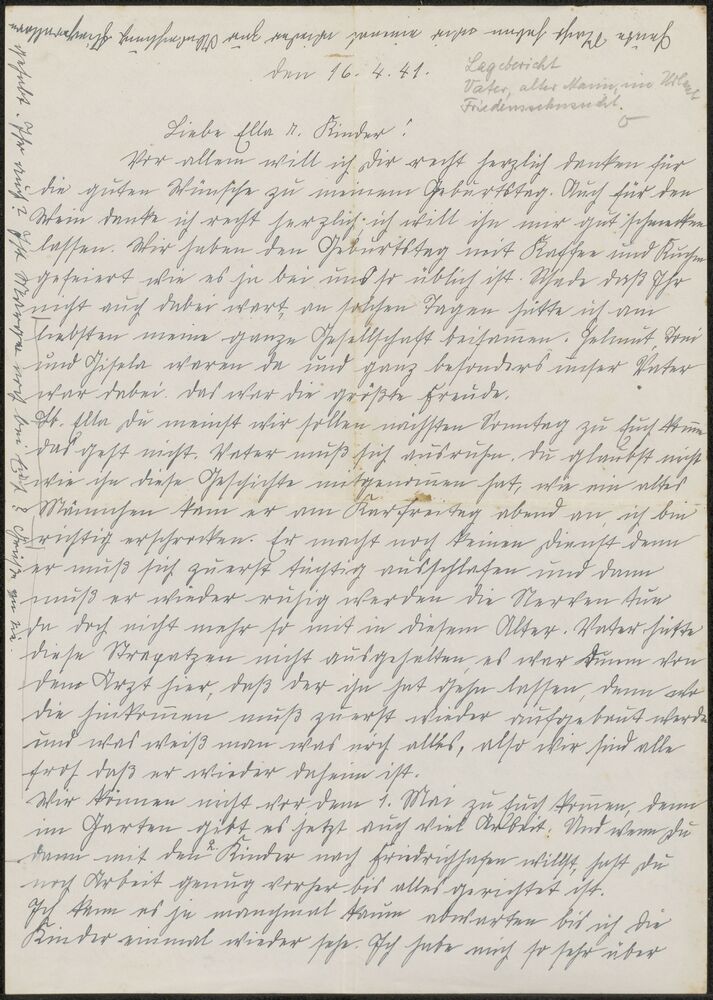 den 16.4.41.
Lagebericht
Vater, alter Mann, im Urlaub
Friedenssehnsucht.
Liebe Ella u. Kinder!
Vor allem will ich Dir recht herzlich danken für
die guten Wünsche zu meinem Geburtstag. Auch für den
Wein danke ich recht herzlich, ich will ihn mir gut schmecken
lassen. Wir haben den Geburtstag mit Kaffee und Kuchen
gefeiert wie es ja bei uns so üblich ist. Schade daß Ihr
nicht auch dabei wart, an solchen Tagen hätte ich am
liebsten meine ganze Gesellschaft beisammen. Helmut, Toni
und Gisela waren da und ganz besonders unser Vater
war dabei. das war die größte Freude.
Lb. Ella Du meinst wir sollen nächsten Sonntag zu Euch komme
das geht nicht. Vater muß sich ausruhn. du glaubst nicht
wie ihn diese Geschichte mitgenommen hat, wie ein altes
Männchen kam er am Karfreitag abend an, ich bin
richtig erschrocken. Er macht noch keinen Dienst denn
er muß sich zuerst tüchtig ausschlafen und dann
muß er wieder ruhig werden die Nerven tun
da doch nicht mehr so mit in diesem Alter. Vater hätte
diese Strapatzen nicht ausgehalten, es war dumm von
dem Arzt hier, daß der ihn hat gehn lassen, denn wo
die hinkommen muß zuerst wieder aufgebaut werde
und was weiß man was noch alles, also wir sind alle
froh daß er wieder daheim ist.
Wir können nicht vor dem 1. Mai zu Euch kommen, denn
im Garten gibt es jetzt auch viel Arbeit. Und wenn Du
dann mit den 2 Kinder nach Friedrichhafen willst, hast Du
noch Arbeit genug vorher bis alles gerichtet ist.
Ich kann es ja manchmal kaum abwarten bis ich die
Kinder einmal wieder sehe. Ich habe mich so sehr über